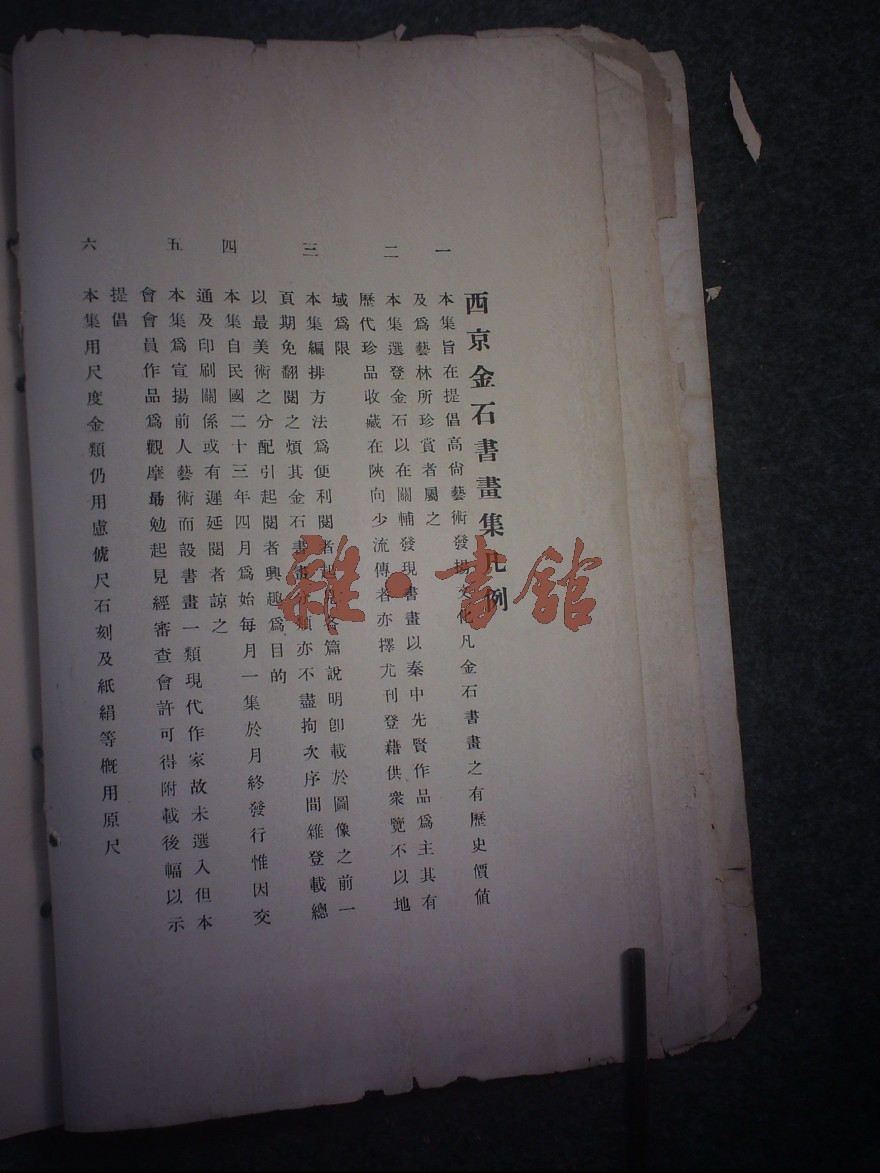 西京金石書畫集凡例
一 本集旨在提倡高尙藝術發揚文化凡金石書畫之有歷史價値
及爲藝林所珍賞者屬之
二 本集選登金石以在關輔發現書畫以秦中先賢作品爲主其有
歷代珍品收藏在陝向少流傳者亦擇尤刊登藉供衆覽不以地
域爲限
三 本集編排方法爲便利閱者起見各篇說明卽載於圖像之前一
頁期免翻閱之煩其金石書畫分類亦不盡拘次序間雜登載總
以最美術之分配引起閱者興趣爲目的
四 本集自民國二十三年四月爲始每月一集於月終發行惟因交
通及印刷關係或有遲延閱者諒之
五 本集爲宣揚前人藝術而設書畫一類現代作家故未選入但本
會會員作品爲觀摩最勉起見經審查會許可得附載後幅以示
提倡
六 本集用尺度金類仍用慮俿尺石刻及紙絹等槪用原尺
雜·書館